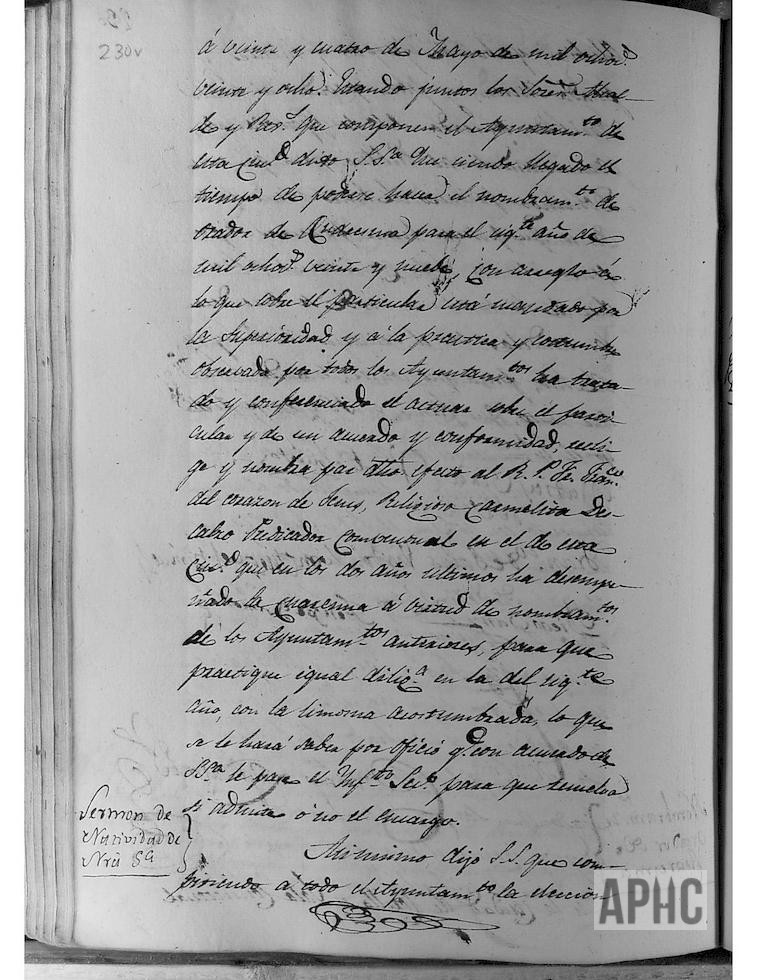 230v
á veinte y cuatro de Mayo de mil ochocs
veinte y ocho: Estando juntos los Sores Alcal-
de y Res. que componen el Ayuntamto de
esta Ciud dixo S.Sa Que siendo llegado el
tiempo de poderse hacer el nombramto de
Orador de Quaresma para el sigte año de
mil ochocs veinte y nuebe, con arreglo á
lo que sobre el particular está mandado por
la Superioridad y á la practica y costumbre
observada por todos los Ayuntamtos ha trata-
do y conferenciado el actual sobre el parti-
cular y de un acuerdo y conformidad, eli-
ge y nombra par dho efecto al R. P. Fr. Franco
del corazon de Jesus, Religioso Carmelita Des-
calzo Predicador Conventual en el de esta
Ciud que en los dos años ultimos ha desempe-
ñado la Cuaresma á virtud de nombramtos
de los Ayuntamtos anteriores, para que
practique igual diliga en la del sigte
año, con la limosna acostumbrada, lo que
se le hará saber por oficio qe con acuerdo de
S.Sa le pase el Infto Seco para que resuelva
si admite ó no el encargo.
Sermon de
Natividad de
Nrã Sã
Asimismo dijo S.S. que com-
pitiendo a todo el Ayuntamto la eleccion
APHC